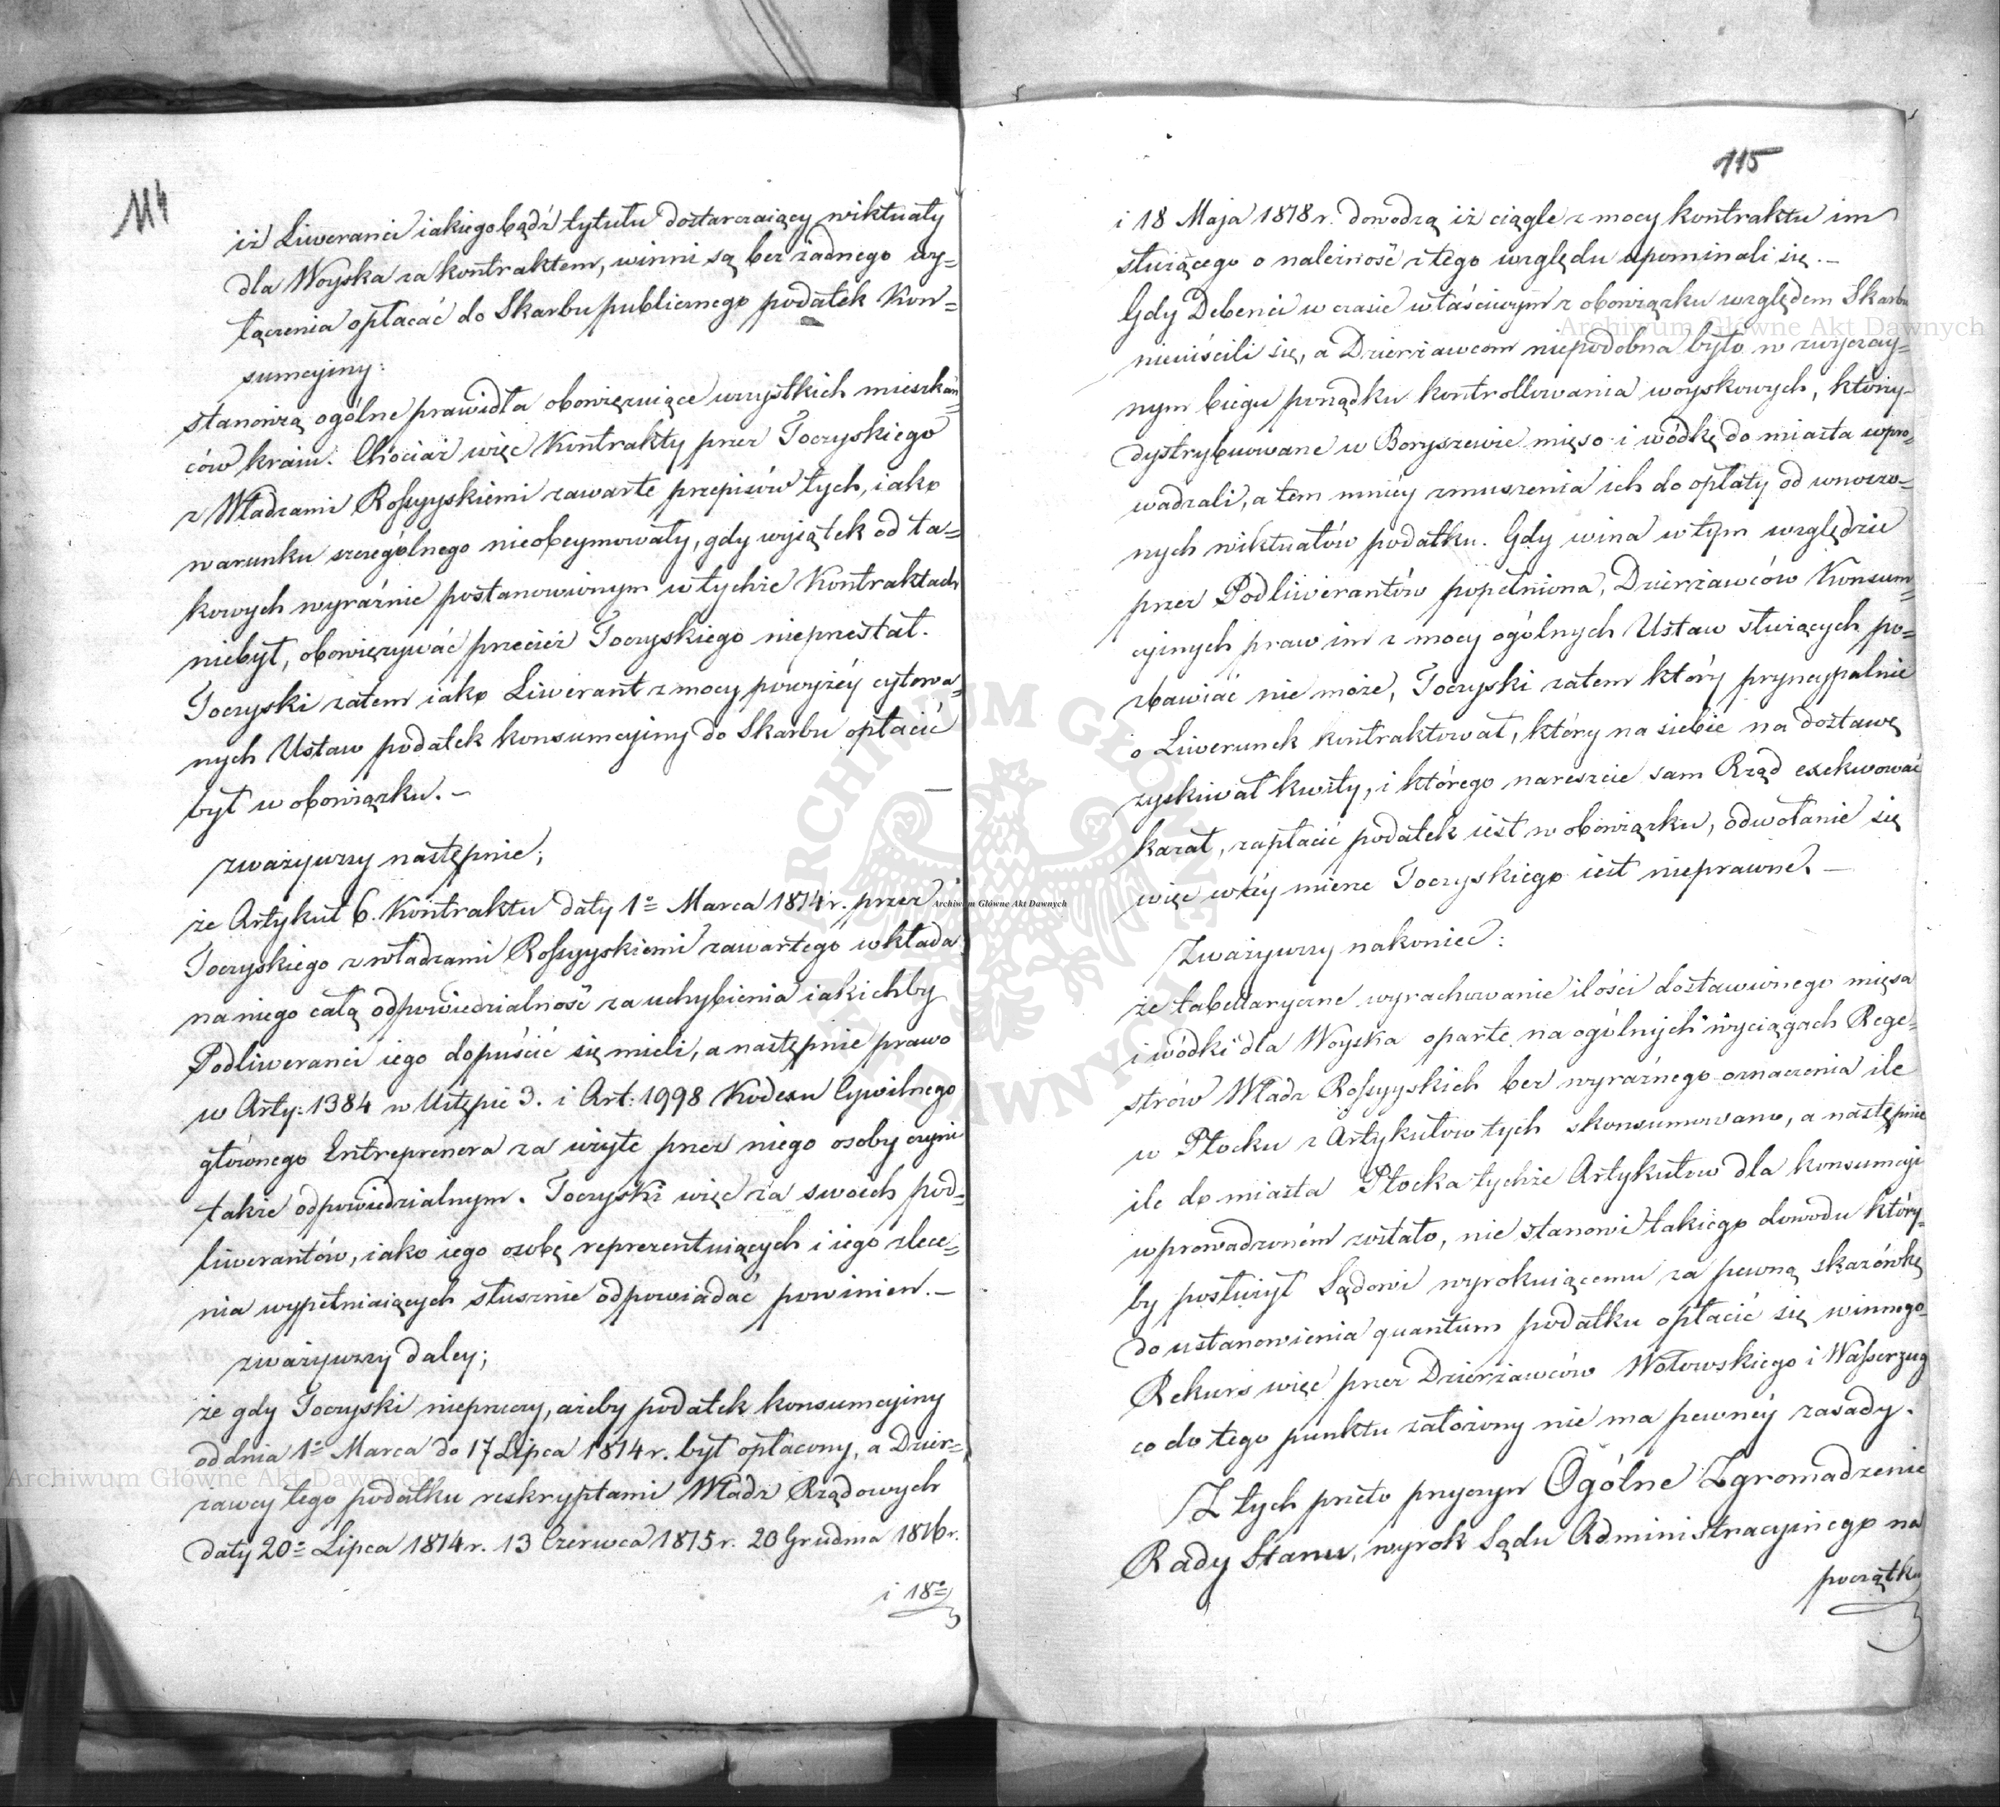 114
iż Liweranci iakiegobądź tytułu dostarczaiący wiktuały
dla Woyska za kontraktem, winni są bez żadnego wy=
łączenia opłacać do Skarbu publicznego podatek Kon=
sumcyiny:
stanowią ogólne prawidła obowięzuiące wszystkich mieszkań=
ców kraiu. Chociaż więc Kontrakty przez Toczyskiego
z Władzami Rossyyskiemi zawarte przepisów tych, iako
warunku szczególnego nieobeymowały, gdy wyiątek od ta=
kowych wyraźnie postanowionym w tychże Kontraktach
niebył, obowięzywać przecież Toczyskiego nieprzestał.
Toczyski zatem iako Liwerant z mocy powyżéy cytowa=
nych Ustaw podatek konsumcyiny do Skarbu opłacić
był w obowiązku. –
zważywszy następnie;
że Artykuł 6. Kontraktu daty 1º Marca 1814 r. przez
Toczyskiego z władzami Rossyyskiemi zawartego wkłada
na niego całą odpowiedzialność za uchybienia iakichby
Podliweranci iego dopuścić się mieli, a następnie prawo
w Arty: 1384 w Ustępie 3. i Art: 1998 Kodexu Cywilnego
głównego Entreprenera za użyte przez niego osoby czyni
także odpowiedzialnym. Toczyski więc za swoich pod=
liwerantów, iako iego osobę reprezentuiących i iego zlece=
nia wypełniaiących słusznie odpowiadać powinien. –
zważywszy daley;
że gdy Toczyski nieprzeczy, ażeby podatek konsumcyiny
od dnia 1º Marca do 17 Lipca 1814 r. był opłacony, a Dzier=
żawcy tego podatku reskryptami Władz Rządowych
daty 20º Lipca 1814 r. 13 Czerwca 1815 r. 20 Grudnia 1816 r.
i 18º
115
i 18 Maja 1818 r. dowodzą iż ciągle z mocy kontraktu im
służącego o należność z tego względu upominali się. –
Gdy Debenci w czasie właściwym z obowiązku względem Skarbu
nieuiścili się, a Dzierżawcom niepodobna było w zwyczay=
nym biegu porządku kontrollowania woyskowych, którzy
dystrybuowane w Boryszewie mięso i wódkę do miasta wpro=
wadzali, a tem mniéy zmuszenia ich do opłaty od wwozo=
nych wiktuałów podatku. Gdy wina w tym względzie
przez Podliwerantów popełniona, Dzierżawców Konsum=
cyinych praw im z mocy ogólnych Ustaw służących po=
zbawiać nie może, Toczyski zatem który pryncypalnie
o Liwerunek kontraktował, który na siebie na dostawę
zyskiwał kwity, i którego nareszcie sam Rząd exekwować
kazał, zapłacić podatek iest w obowiązku, odwołanie się
więc w téy mierze Toczyskiego iest nieprawne. –
Zważywszy nakoniec:
że tabellaryczne wyrachowanie ilości dostawionego mięsa
i wódki dla Woyska oparte na ogólnych wyciągach Rege=
strów Władz Rossyyskich bez wyraźnego oznaczenia ile
w Płocku z Artykułow tych skonsumowano, a następnie
ile do miasta Płocka tychże Artykułow dla konsumcyi
wprowadzoném zostało, nie stanowi takiego dowodu który=
by posłużył Sądowi wyrokuiącemu za pewną skazówkę
do ustanowienia quantum podatku opłacić się winnego.
Rekurs więc przez Dzierżawców Wołowskiego i Wasserzug
co do tego punktu założony nie ma pewnéy zasady.
Z tych przeto przyczyn Ogólne Zgromadzenie
Rady Stanu, wyrok Sądu Administracyinego na
początku
Archiwum Główne Akt Dawnych
Archiwum Główne Akt Dawnych
Archiwum Główne Akt Dawnych
ARCHIWUM GŁÓWNE AKT DAWNYCH